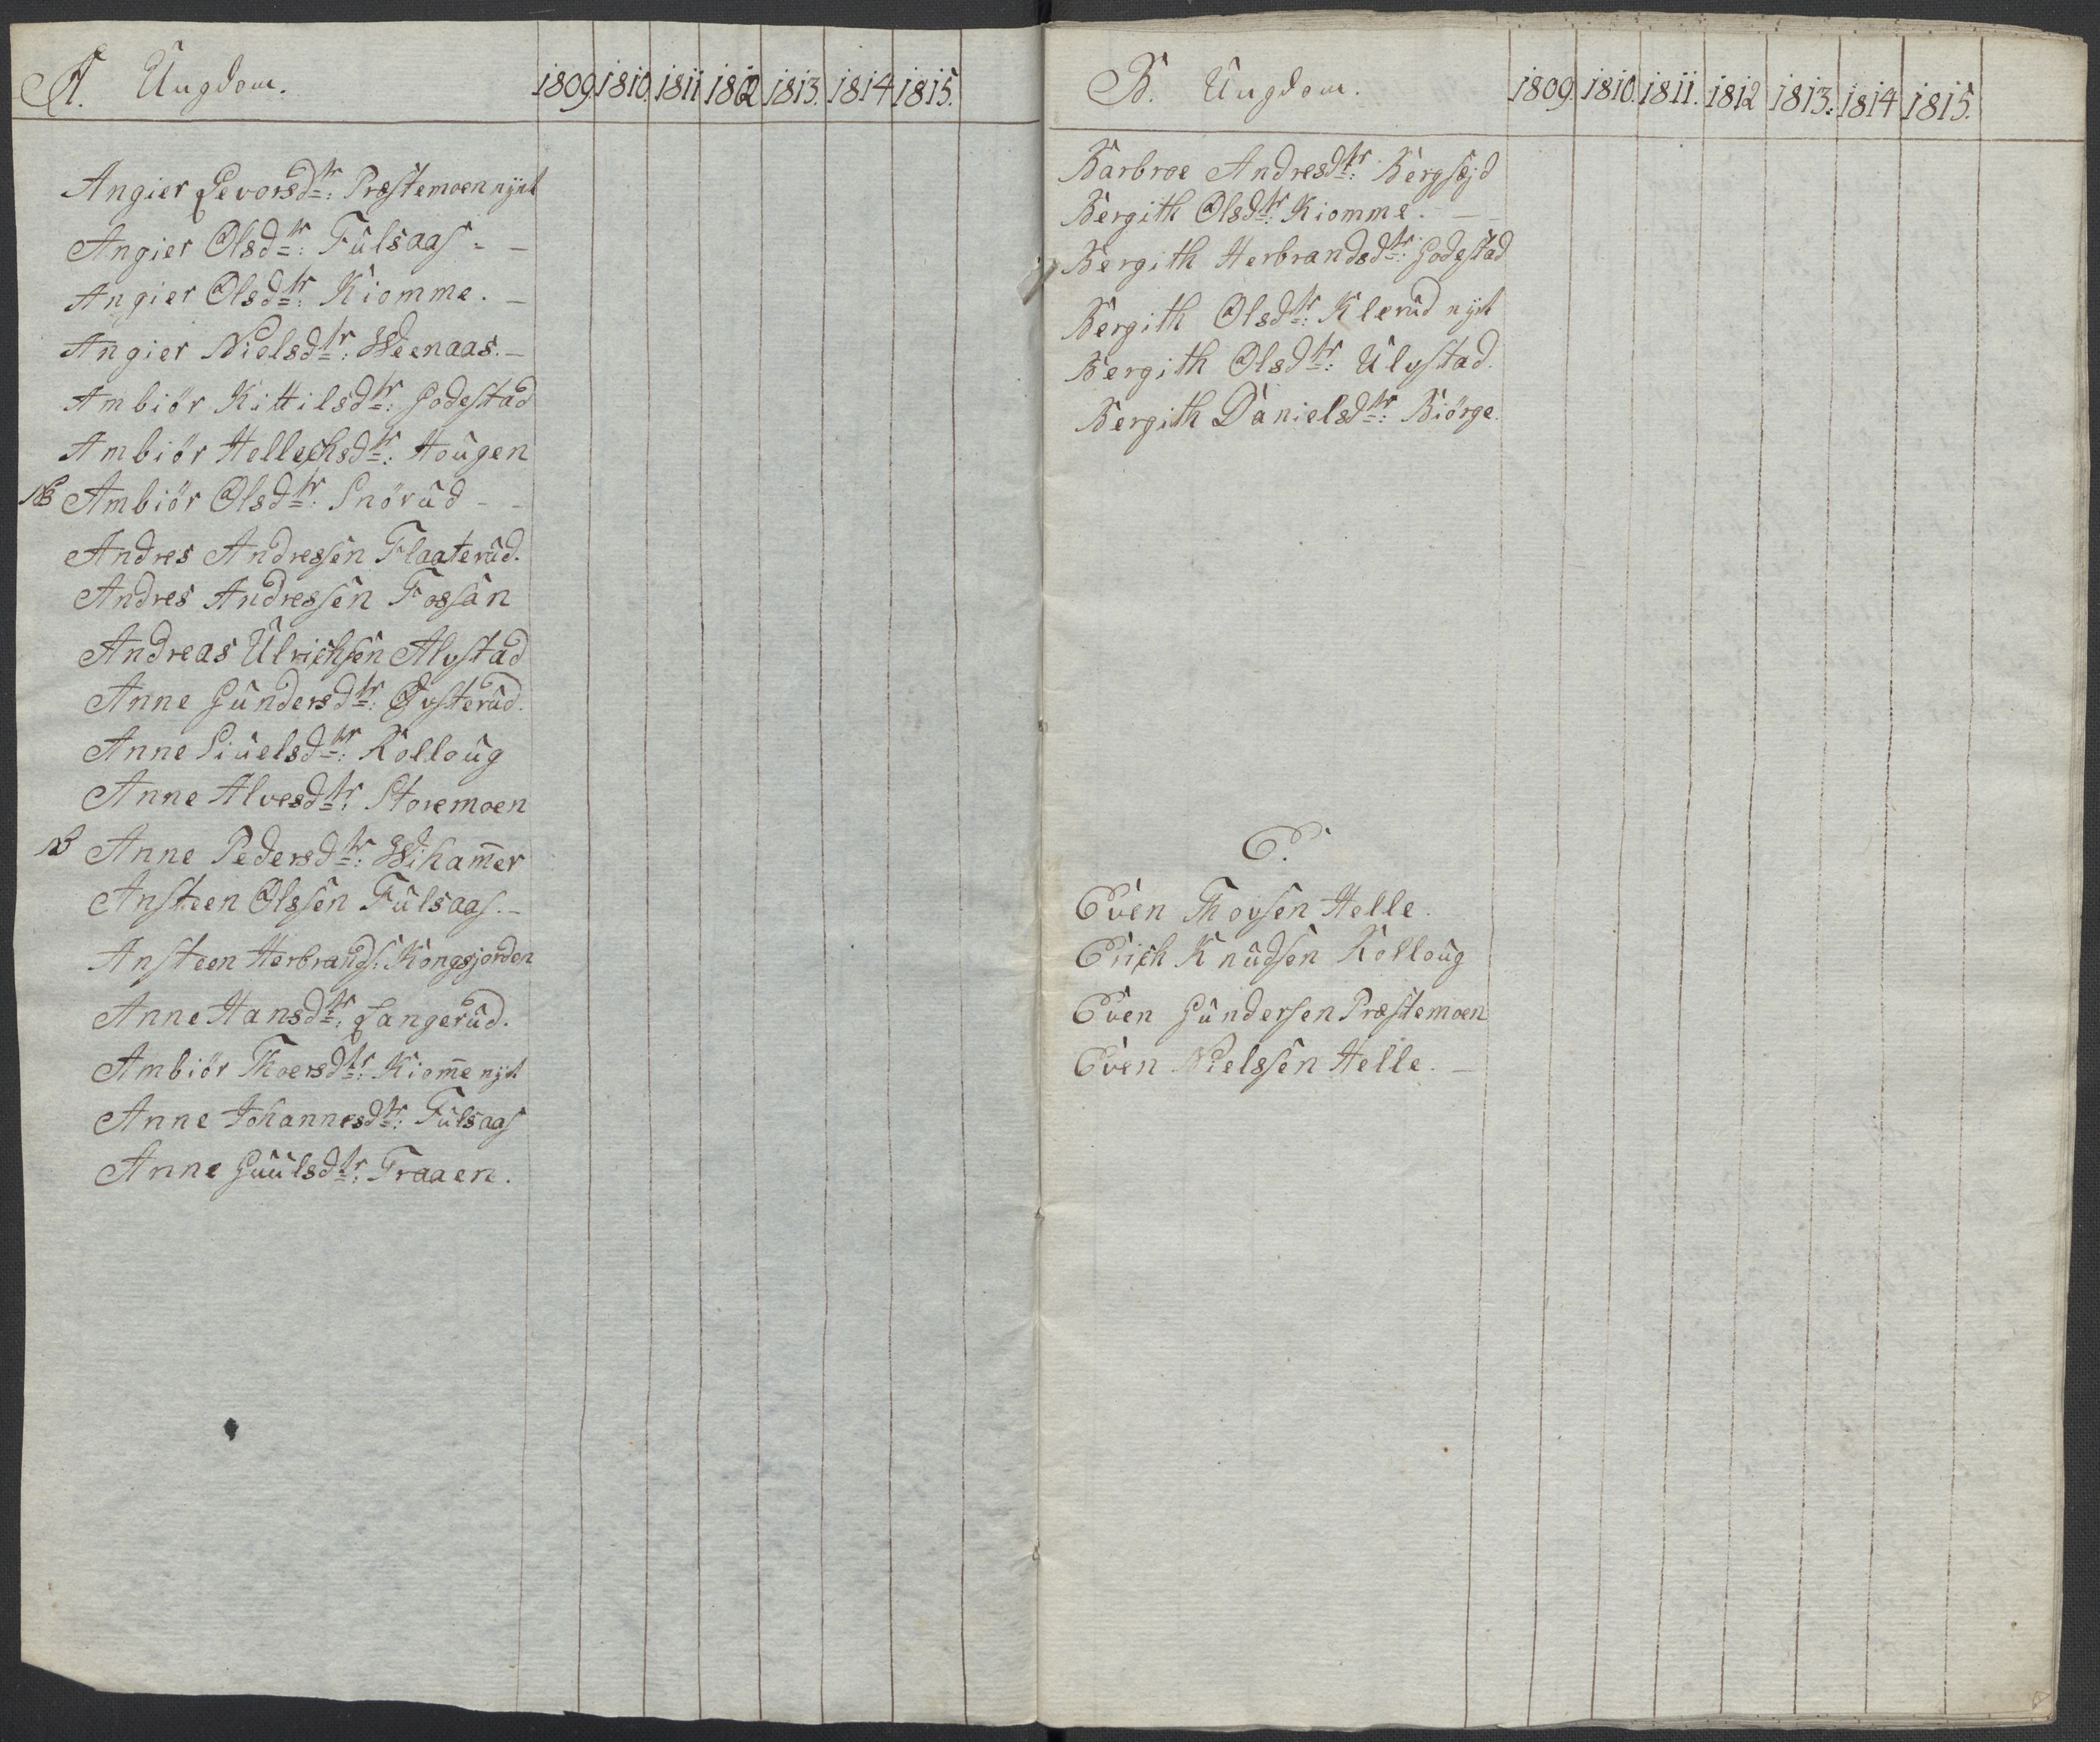 A. Ungdom. 1809. 1810. 1811 1812 1813. 1814 1815.
Angier Levorsdtr: Præstemoen nÿet
Angier Olsdtr: Fulsaas -
Angier Olsdtr: Kiomme. -
Angier Nielsdtr: Weenaas. -
Ambiör Kittilsdtr: Godestad
Ambiör Hellechsdtr: Hougen
NB Ambiör Olsdtr: Snörud - -
Andres Andressen Flaaterud.
Andres Andressen Fossan
Andreas Ulrichsen Alystad
Anne Gundersdtr: Øysterud.
Anne Siuelsdtr: Kolloug
Anne Alvesdtr: Storemoen
NB Anne Pedersdtr: Wikam̄er
Ansteen Olssen Fulsaas. -
Ansteen Herbrands: Kongsjorden
Anne Hansdtr: Langerud.
Ambiör Thoersdtr: Kiom̄e nÿet
Anne Johannesdtr: Fulsaas
Anne Guulsdtr: Fraaen.
B. Ungdom. 1809. 1810. 1811. 1812 1813. 1814 1815.
Barbroe Andresdtr: Bergsejd
Bergith Olsdtr: Kiomme. - -
Bergith Herbrandsdtr: Godestad
Bergith Olsdtr: Klerud nÿet
Bergith Olsdtr: Ulystad.
Bergith Danielsdtr: Biörge.
E.
Even Thoysen Helle.
Erich Knudsen Kolloug
Even Gundersen Præstemoen
Even Nielssen Helle. -